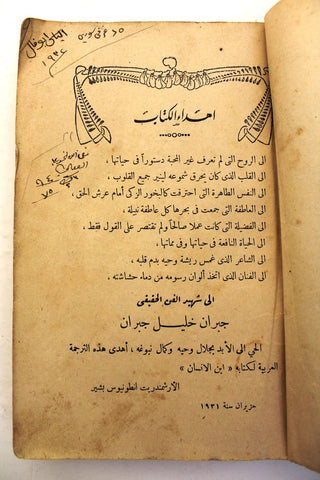 ٦٥ غرش سوري
الياس ابو فال
١٩٣٤
اهداء الكتاب
الى الروح التي لم تعرف غير المحبة دستوراً في حياتها،
الى القلب الذي كان يحرق شموعه لينير جميع القلوب،
الى النفس الطاهرة التي احترقت كالبخور الزكي أمام عرش الحق،
الى العاطفة التي جمعت في بحرها كل عاطفة نبيلة،
الى الفضيلة التي كانت عملا صالحاً ولم تقتصر على القول فقط،
الى الحياة النافعة في حياتها وفي مماتها،
الى الشاعر الذي غمس ريشة وحيه بدم قلبه،
الى الفنان الذي اتخذ ألوان رسومه من دماء حشاشته،
الى شهيد الفن الحقيقي
جبران خليل جبران
الحي الى الأبد بجلال وحيه وكمال نبوغه، أهدي هذه الترجمة
العربية لكتابه « ابن الانسان »
الارشمندريت انطونيوس بشير
حزيران سنة ١٩٣١